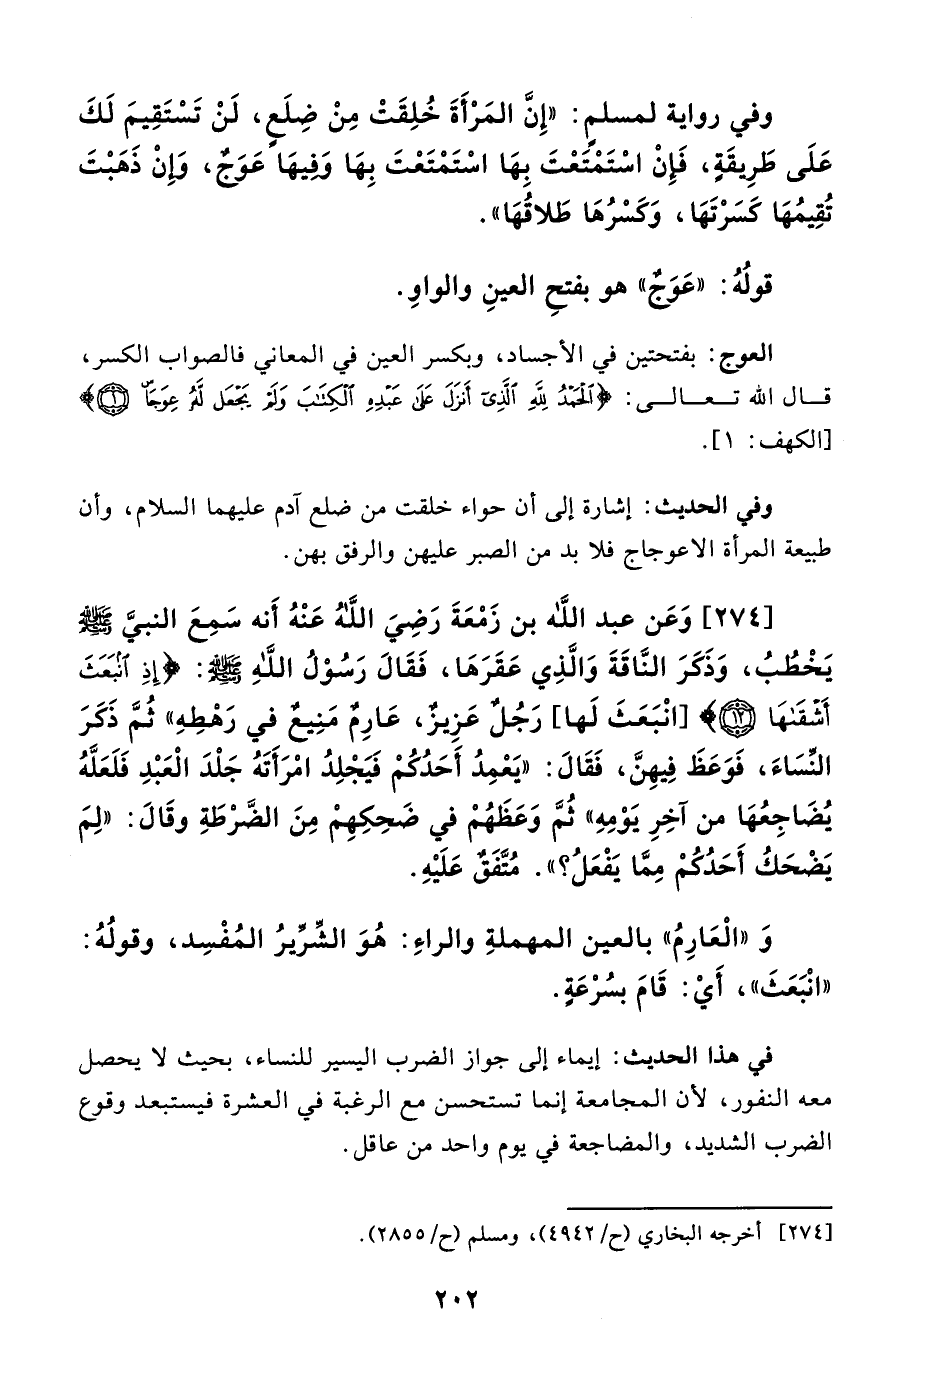 وفي رواية لمسلمٍ: «إِنَّ المَرْأَةَ خُلِقَتْ مِنْ ضِلَعٍ، لَنْ تَسْتَقِيمَ لَكَ
عَلَى طَرِيقَةٍ، فَإِنْ اسْتَمْتَعْتَ بِهَا اسْتَمْتَعْتَ بِهَا وَفِيهَا عَوَجٌ، وَإِنْ ذَهَبْتَ
تُقِيمُهَا كَسَرْتَهَا، وَكَسْرُهَا طَلاقُهَا».
قولُهُ: «عَوَجٌ» هو بفتحِ العينِ والواوِ.
العوج: بفتحتين في الأجساد، وبكسر العين في المعاني فالصواب الكسر،
قـال الله تـعـالـى: ﴿ٱلْحَمْدُ لِلَّهِ ٱلَّذِىٓ أَنزَلَ عَلَىٰ عَبْدِهِ ٱلْكِتَٰبَ وَلَمْ يَجْعَل لَّهُۥ عِوَجَاۜ ۝١﴾
[الكهف: ١].
وفي الحديث: إشارة إلى أن حواء خلقت من ضلع آدم عليهما السلام، وأن
طبيعة المرأة الاعوجاج فلا بد من الصبر عليهن والرفق بهن.
[٢٧٤] وَعَن عبد اللَّٰه بن زَمْعَةَ رَضِيَ اللَّهُ عَنْهُ أنه سَمِعَ النبيَّ ﷺ
يَخْطُبُ، وَذَكَرَ النَّاقَةَ وَالَّذِي عَقَرَهَا، فَقَالَ رَسُوْلُ اللَّهِ ﷺ: ﴿إِذِ ٱنۢبَعَثَ
أَشْقَىٰهَا ۝١٢﴾ [انْبَعَثَ لَها] رَجُلٌ عَزِيزٌ، عَارِمٌ مَنِيعٌ في رَهْطِهِ» ثُمَّ ذَكَرَ
النِّساءَ، فَوَعَظَ فِيهِنَّ، فَقَالَ: «يَعْمِدُ أَحَدُكُمْ فَيَجْلِدُ امْرَأَتَهُ جَلْدَ الْعَبْدِ فَلَعَلَّهُ
يُضَاجِعُهَا من آخِرِ يَوْمِهِ» ثُمَّ وَعَظَهُمْ في ضَحِكِهِمْ مِنَ الضَّرْطَةِ وقَالَ: «لِمَ
يَضْحَكُ أَحَدُكُمْ مِمَّا يَفْعَلُ؟». مُتَّفَقٌ عَلَيْهِ.
وَ «الْعَارِمُ» بالعين المهملةِ والراءِ: هُوَ الشِّرِّيرُ المُفْسِد، وقولُهُ:
«انْبَعَثَ»، أَيْ: قَامَ بسُرْعَةٍ.
في هذا الحديث: إيماء إلى جواز الضرب اليسير للنساء، بحيث لا يحصل
معه النفور، لأن المجامعة إنما تستحسن مع الرغبة في العشرة فيستبعد وقوع
الضرب الشديد، والمضاجعة في يوم واحد من عاقل.
[٢٧٤] أخرجه البخاري (ح/٤٩٤٢)، ومسلم (ح/٢٨٥٥).
٢٠٢